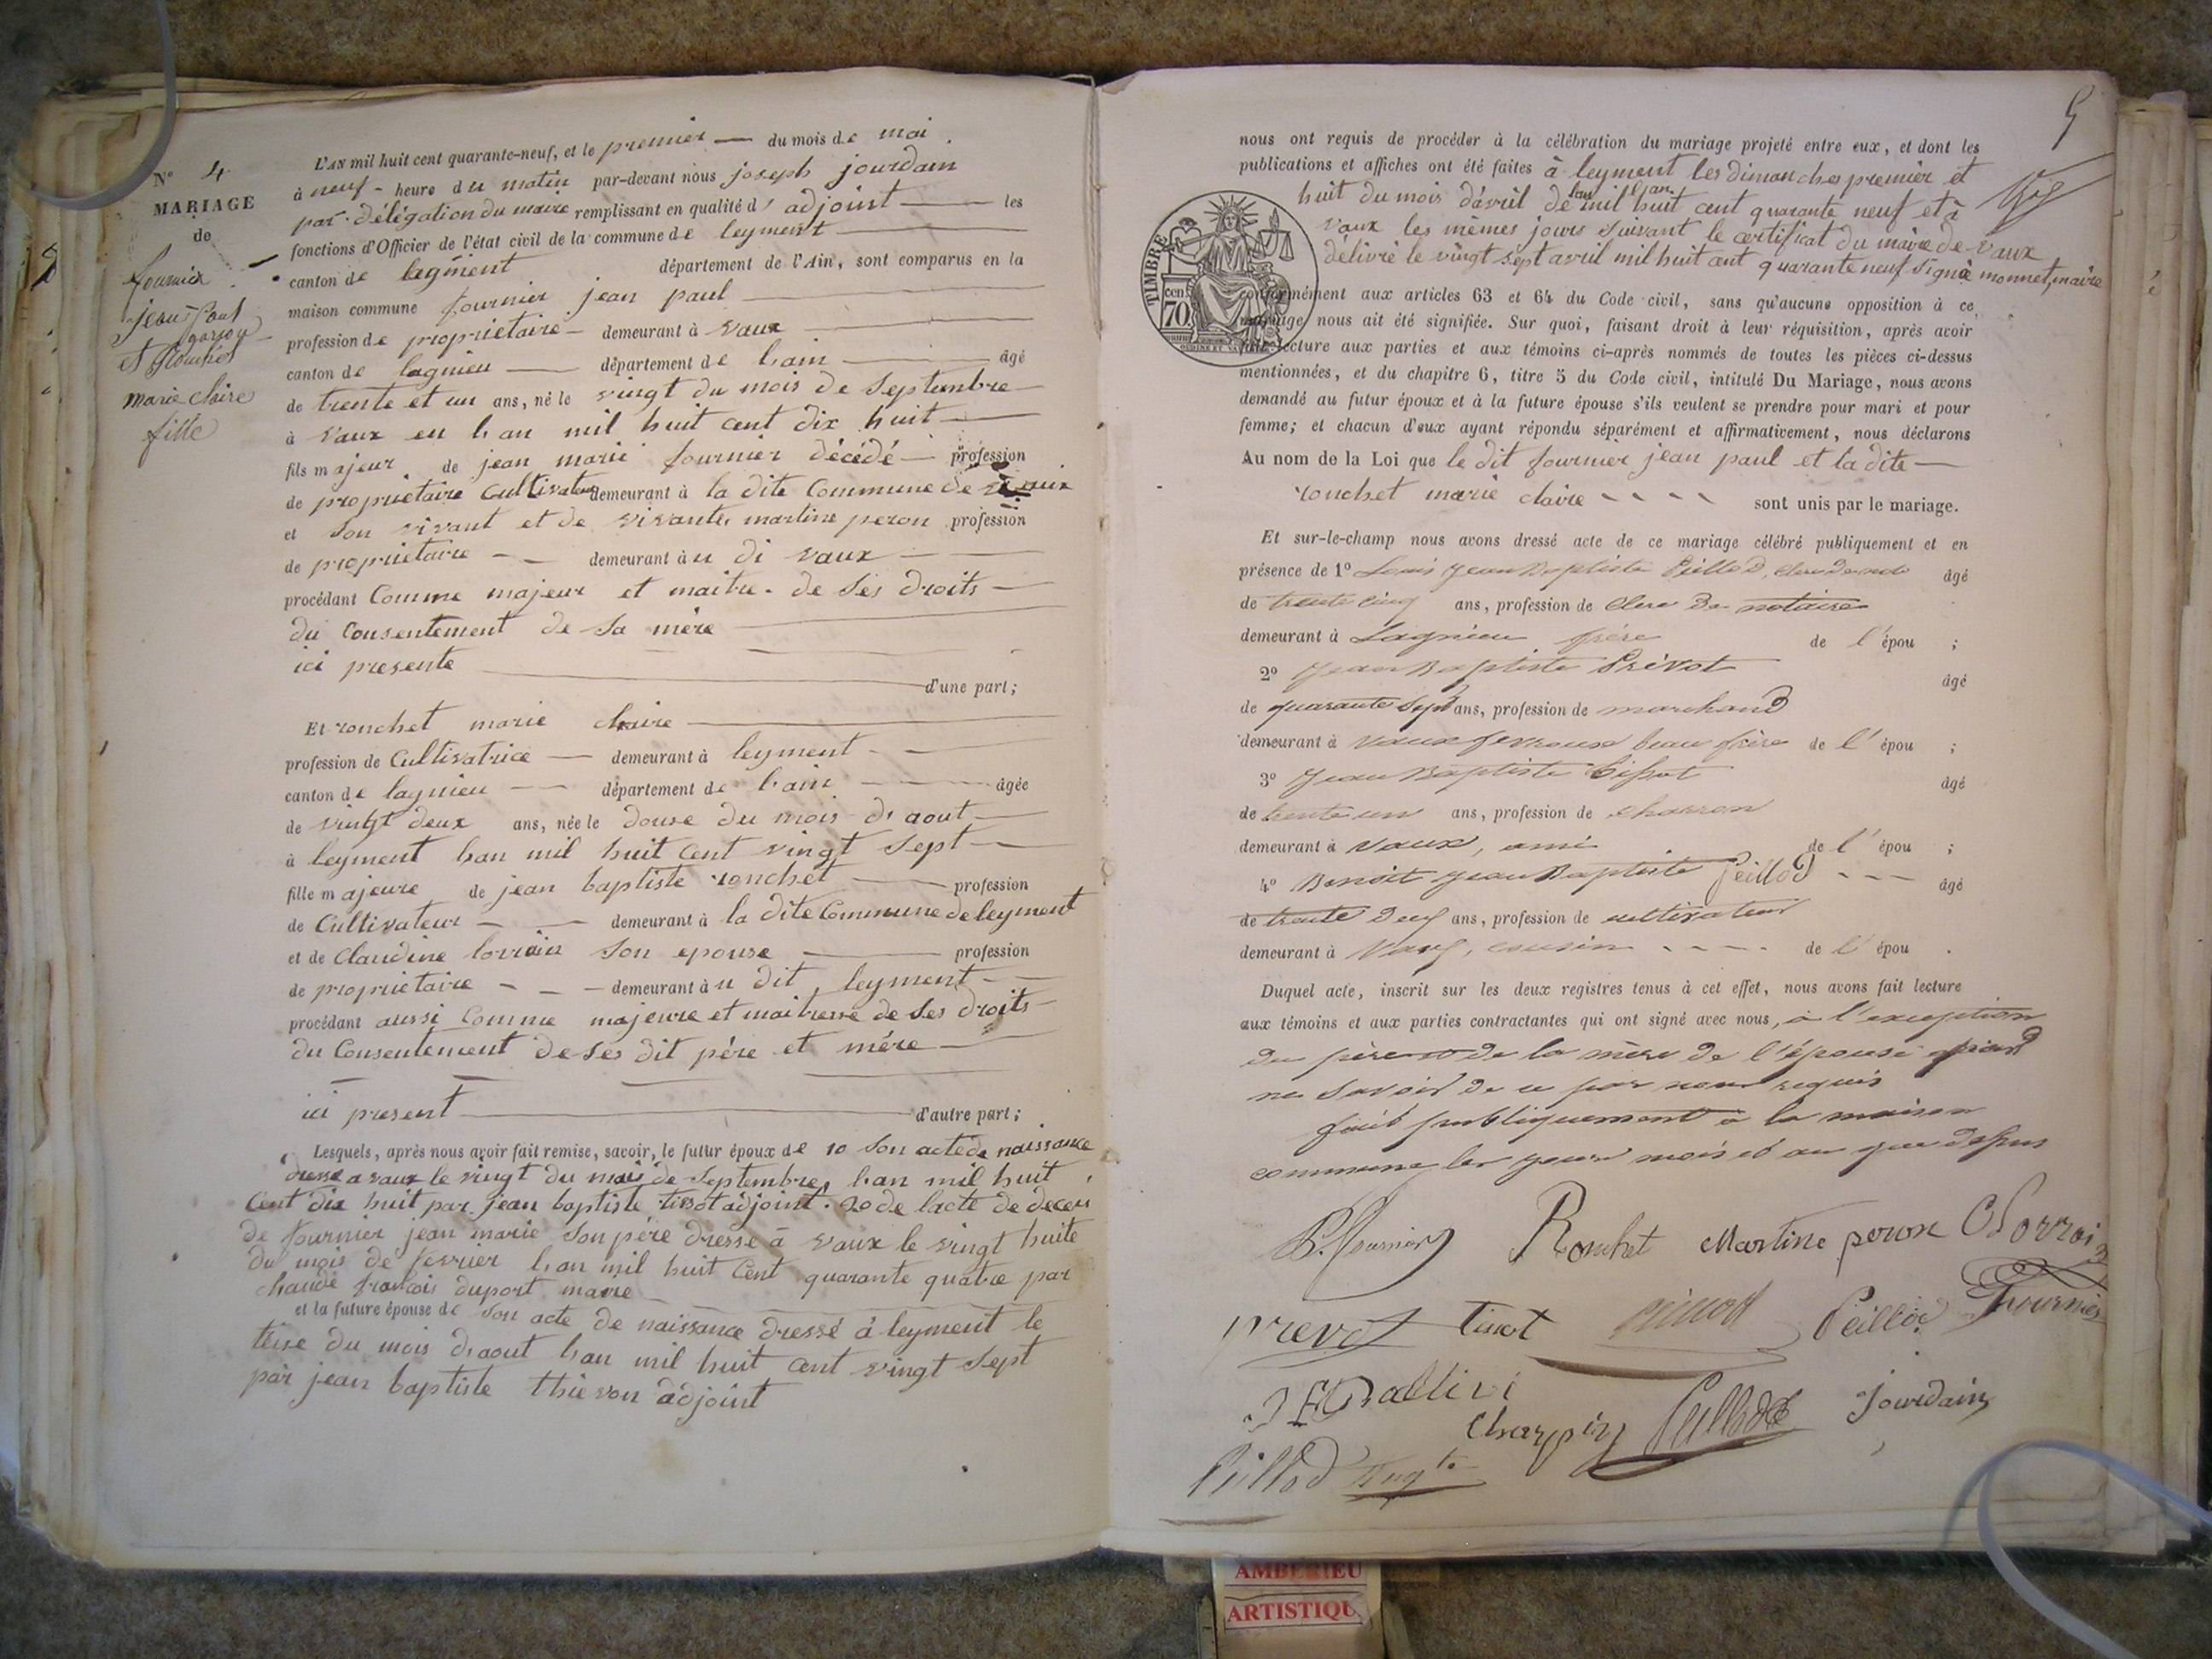 N° 4
MARIAGE
de
fournier
jean Paul
garçon
et Ronchet
marie claire
fille
L'AN mil huit cent quarante-neuf, et le premier — du mois de mai
à neuf - heure du matin par-devant nous joseph jourdain
par délégation du maire remplissant en qualité d' adjoint — les
fonctions d'Officier de l'état civil de la commune de leyment
canton de lagnient département de l'Ain, sont comparus en la
maison commune fournier jean paul
profession de propriétaire — demeurant à vaux
canton de lagnieu — département de lain — âgé
de trente et un ans, né le vingt du mois de Septembre
à vaux en lan mil huit cent dix huit
fils majeur de jean marie fournier décédé — profession
de propriétaire Cultivateur demeurant à la dite Commune de vaux
et Son vivant et de vivante martine peron profession
de propriétaire — demeurant à u di vaux
procédant Comme majeur et maitre de Ses droits
du Consentement de Sa mère
ici presente
d'une part;
Et ronchet marie claire
profession de Cultivatrice — demeurant à leyment
canton de lagnieu — département de lain — âgée
de vingt deux ans, née le douse du mois d'aout
à leyment lan mil huit Cent vingt Sept
fille majeure de jean baptiste ronchet — profession
de Cultivateur — demeurant à la dite Commune de leyment
et de Claudine lorrain Son epouse — profession
de propriétaire — demeurant à u dit leyment
procédant aussi Comme majeure et maitresse de Ses droits
du Consentement de Ses dit père et mère
ici present — d'autre part;
Lesquels, après nous avoir fait remise, savoir, le futur époux de 1o Son acte de naissance
dressé a vaux le vingt du mois de Septembre lan mil huit
Cent dix huit par jean baptiste tissot adjoint. 2o de lacte de deces
de fournier jean marie Son père dressé à vaux le vingt huite
du mois de fevrier lan mil huit Cent quarante quatre par
claude francois duport maire
et la future épouse de Son acte de naissance dressé à leyment le
treise du mois d'aout lan mil huit cent vingt Sept
par jean baptiste thievon adjoint
5
nous ont requis de procéder à la célébration du mariage projeté entre eux, et dont les
publications et affiches ont été faites à leyment les dimanches premier et
huit du mois d'avril de lan mil huit cent quarante neuf et à
vaux les mêmes jours Suivant le certificat du maire de vaux
délivré le vingt sept avril mil huit cent quarante neuf Signé monnet, maire
TIMBRE
70 cen.
conformément aux articles 63 et 64 du Code civil, sans qu'aucune opposition à ce
mariage nous ait été signifiée. Sur quoi, faisant droit à leur réquisition, après avoir
fait lecture aux parties et aux témoins ci-après nommés de toutes les pièces ci-dessus
mentionnées, et du chapitre 6, titre 5 du Code civil, intitulé Du Mariage, nous avons
demandé au futur époux et à la future épouse s'ils veulent se prendre pour mari et pour
femme; et chacun d'eux ayant répondu séparément et affirmativement, nous déclarons
Au nom de la Loi que le dit fournier jean paul et la dite
ronchet marie claire — sont unis par le mariage.
Et sur-le-champ nous avons dressé acte de ce mariage célébré publiquement et en
présence de 1° Louis Jean Baptiste Peillod, âgé
de trente cinq ans, profession de Clerc de notaire
demeurant à Lagnieu frère de l'épou ;
2° Jean Baptiste Prévot âgé
de quarante Sept ans, profession de marchand
demeurant à vaux beau frère de l'épou ;
3° Jean Baptiste Tissot âgé
de trente un ans, profession de charron
demeurant à vaux, ami de l'épou ;
4° Benoit Jean Baptiste Peillod — âgé
de trente deux ans, profession de cultivateur
demeurant à Vaux, cousin — de l'épou .
Duquel acte, inscrit sur les deux registres tenus à cet effet, nous avons fait lecture
aux témoins et aux parties contractantes qui ont signé avec nous, à l'exception
du père de la mère de l'épouse
ne savoir de ce par nous requis
fait publiquement à la maison
commune les jour mois et an que dessus
Fournier Ronchet Martine peron C Lorrain
prevot tissot Peillod Fournier
Charpin Peillod Jourdain
Peillod
AMBERIEU
ARTISTIQU